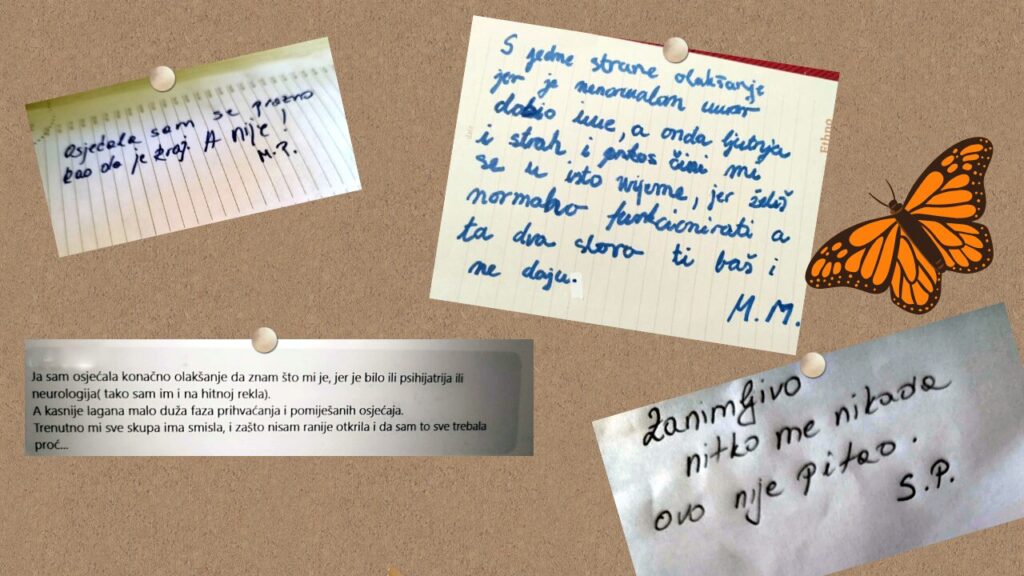 osjećala sam se prazno
kao da je kraj. A nije!
M.P.
S jedne strane olakšanje
jer je nenormalan umor
dobio ime, a onda ljutnja
i strah i prkos čini mi
se u isto vrijeme, jer želiš
normalno funkcionirati a
ta dva slova ti baš i
ne daju.
M.M.
Ethno
Ja sam osjećala konačno olakšanje da znam što mi je, jer je bilo ili psihijatrija ili
neurologija( tako sam im i na hitnoj rekla).
A kasnije lagana malo duža faza prihvaćanja i pomiješanih osjećaja.
Trenutno mi sve skupa ima smisla, i zašto nisam ranije otkrila i da sam to sve trebala
proć...
Zanimljivo
nitko me nikada
ovo nije pitao.
S.P.